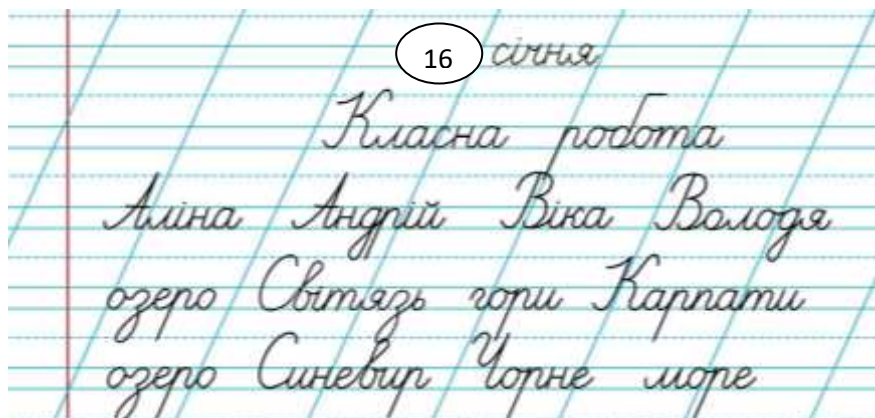 16 січня
Класна робота
Аліна Андрій Віка Володя
озеро Світязь гори Карпати
озеро Синевир Чорне море